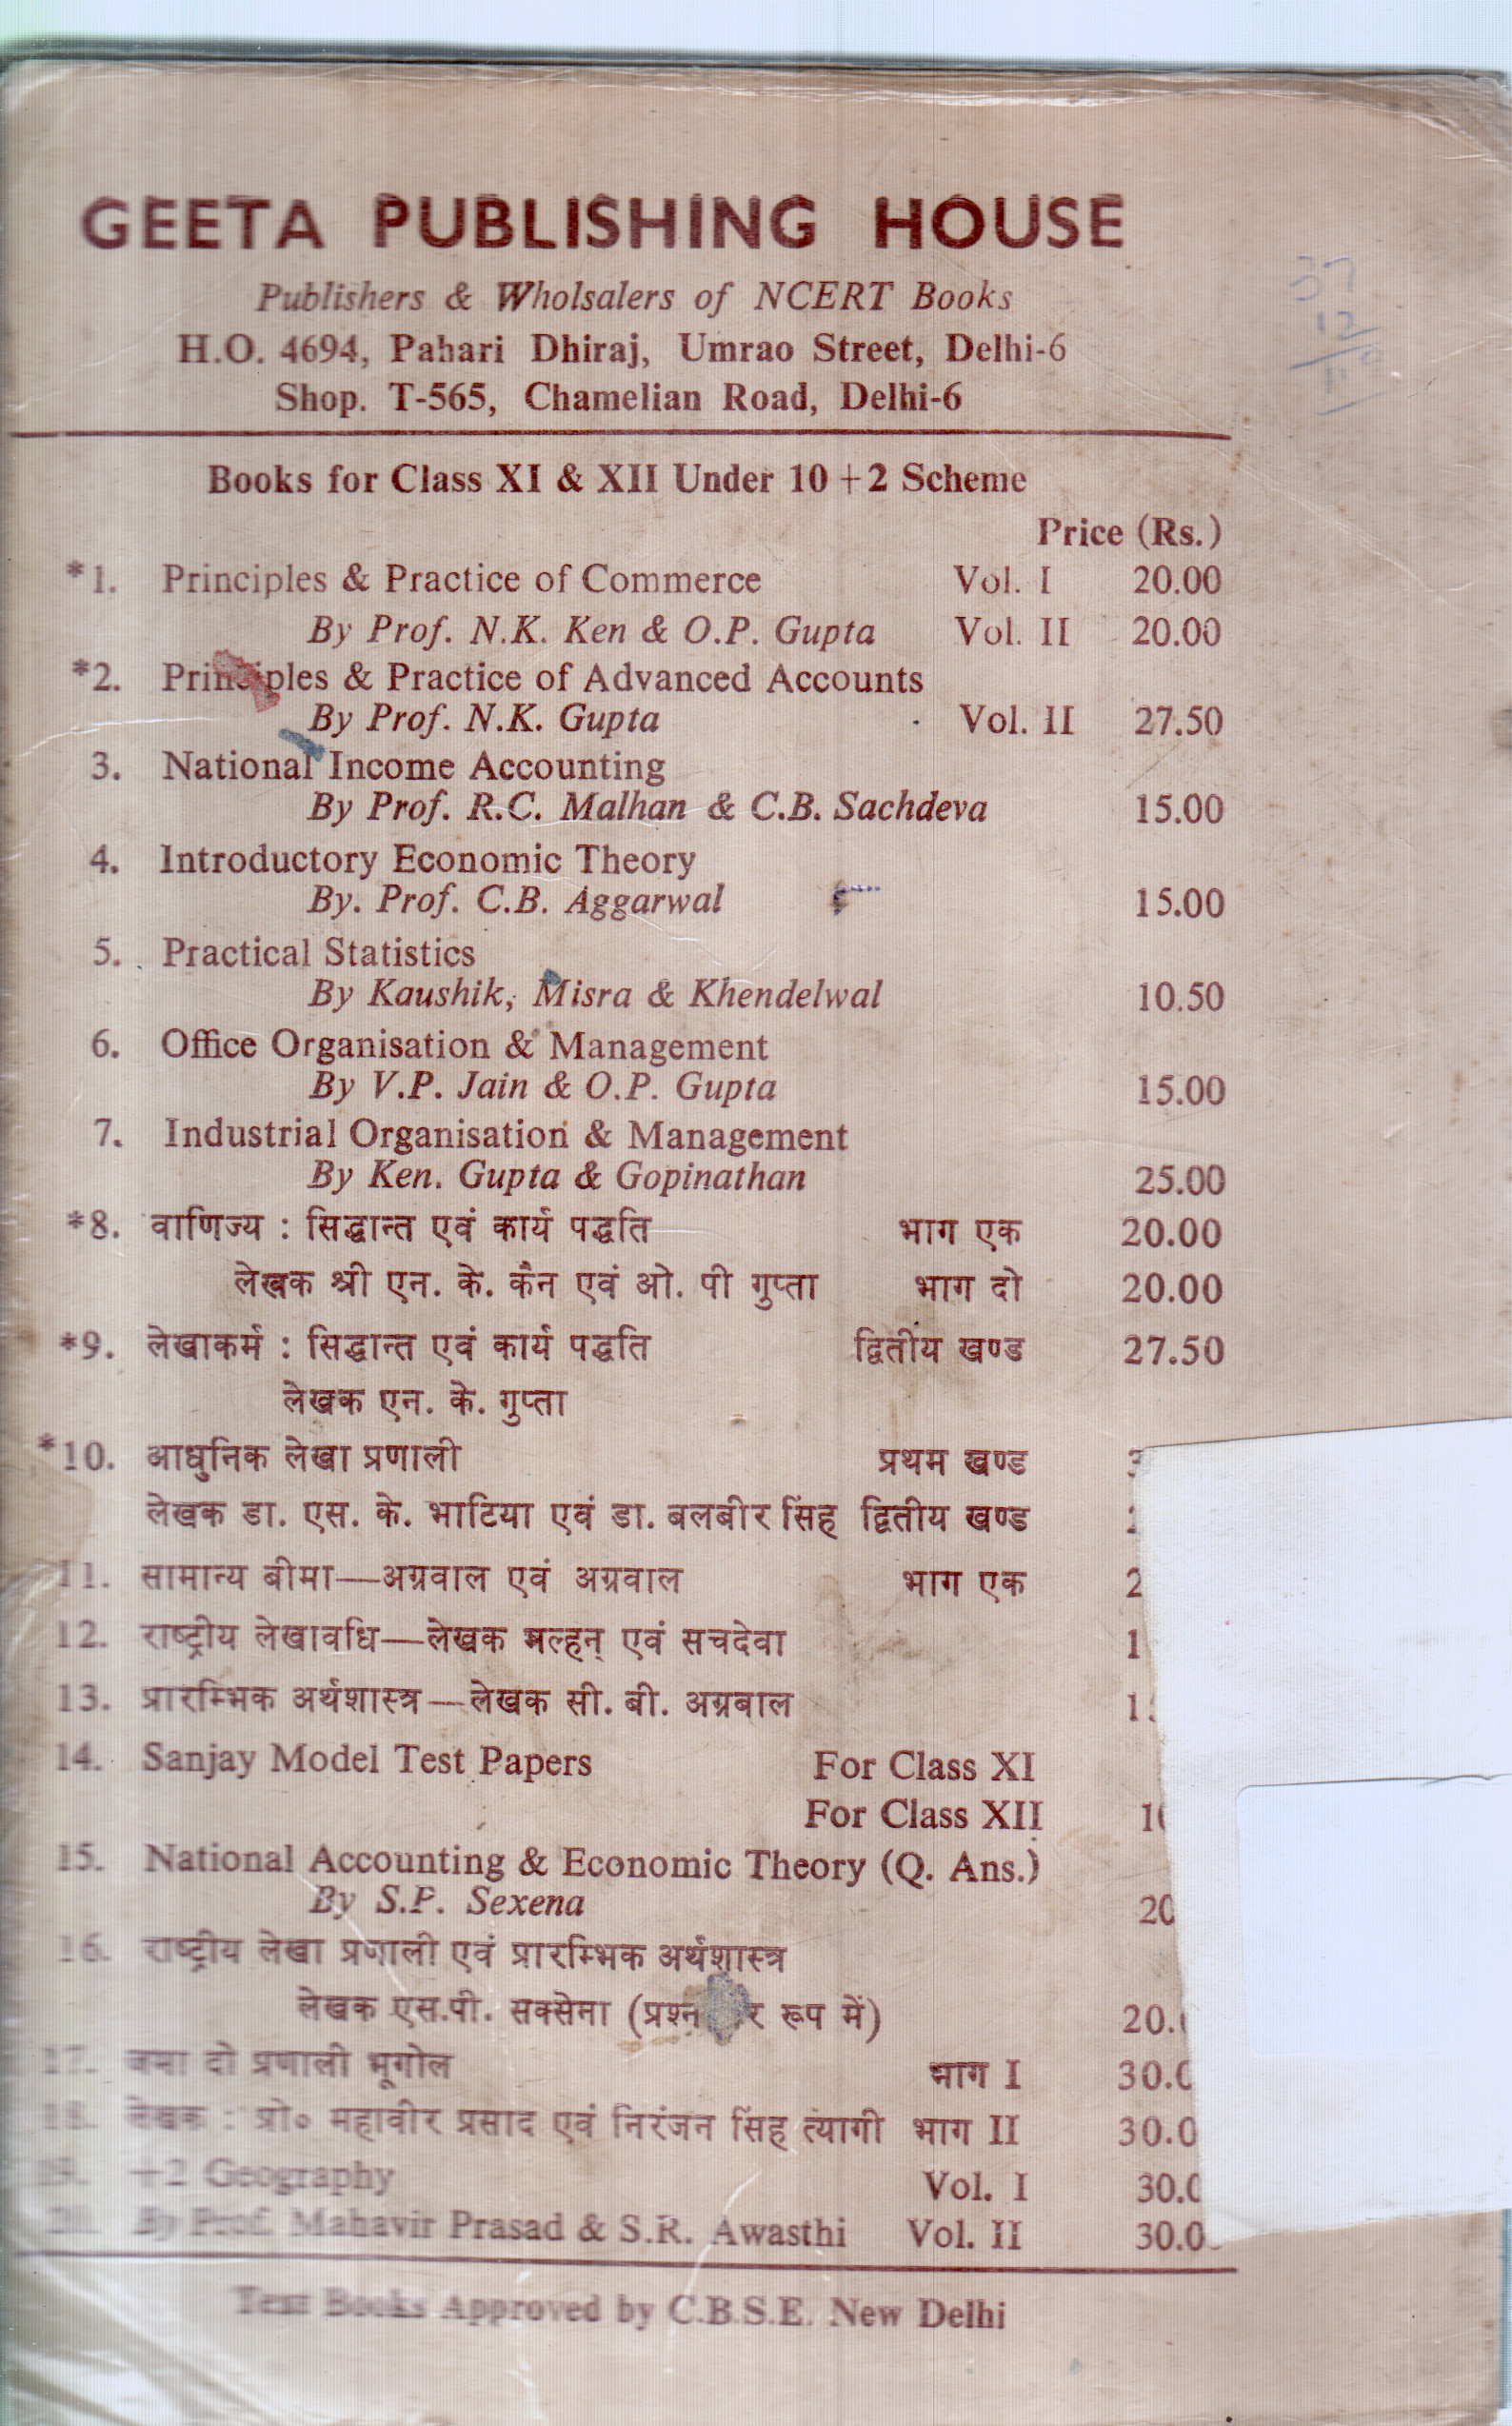 GEETA PUBLISHING HOUSE
Publishers & Wholsalers of NCERT Books
H.O. 4694, Pahari Dhiraj, Umrao Street, Delhi-6
Shop. T-565, Chamelian Road, Delhi-6
37
12
Books for Class XI & XII Under 10+2 Scheme
Price (Rs.)
*1. Principles & Practice of Commerce Vol. I 20.00
By Prof. N.K. Ken & O.P. Gupta Vol. II 20.00
*2. Principles & Practice of Advanced Accounts
By Prof. N.K. Gupta Vol. II 27.50
3. National Income Accounting
By Prof. R.C. Malhan & C.B. Sachdeva 15.00
4. Introductory Economic Theory
By. Prof. C.B. Aggarwal 15.00
5. Practical Statistics
By Kaushik, Misra & Khendelwal 10.50
6. Office Organisation & Management
By V.P. Jain & O.P. Gupta 15.00
7. Industrial Organisation & Management
By Ken. Gupta & Gopinathan 25.00
*8. वाणिज्य : सिद्धान्त एवं कार्य पद्धति भाग एक 20.00
लेखक श्री एन. के. कैन एवं ओ. पी गुप्ता भाग दो 20.00
*9. लेखाकर्म : सिद्धान्त एवं कार्य पद्धति द्वितीय खण्ड 27.50
लेखक एन. के. गुप्ता
*10. आधुनिक लेखा प्रणाली प्रथम खण्ड
लेखक डा. एस. के. भाटिया एवं डा. बलबीर सिंह द्वितीय खण्ड
11. सामान्य बीमा—अग्रवाल एवं अग्रवाल भाग एक 2
12. राष्ट्रीय लेखावधि—लेखक मल्हन् एवं सचदेवा 1
13. प्रारम्भिक अर्थशास्त्र—लेखक सी. बी. अग्रबाल 1
14. Sanjay Model Test Papers For Class XI
For Class XII 1
15. National Accounting & Economic Theory (Q. Ans.)
By S.P. Sexena 20
16. राष्ट्रीय लेखा प्रणाली एवं प्रारम्भिक अर्थशास्त्र
लेखक एस.पी. सक्सेना (प्रश्न र रूप में) 20.
17. जमा दो प्रणाली भूगोल भाग I 30.0
18. लेखक : प्रो० महावीर प्रसाद एवं निरंजन सिंह त्यागी भाग II 30.0
19. +2 Geography Vol. I 30.0
20. By Prof. Mahavir Prasad & S.R. Awasthi Vol. II 30.0
Text Books Approved by C.B.S.E. New Delhi